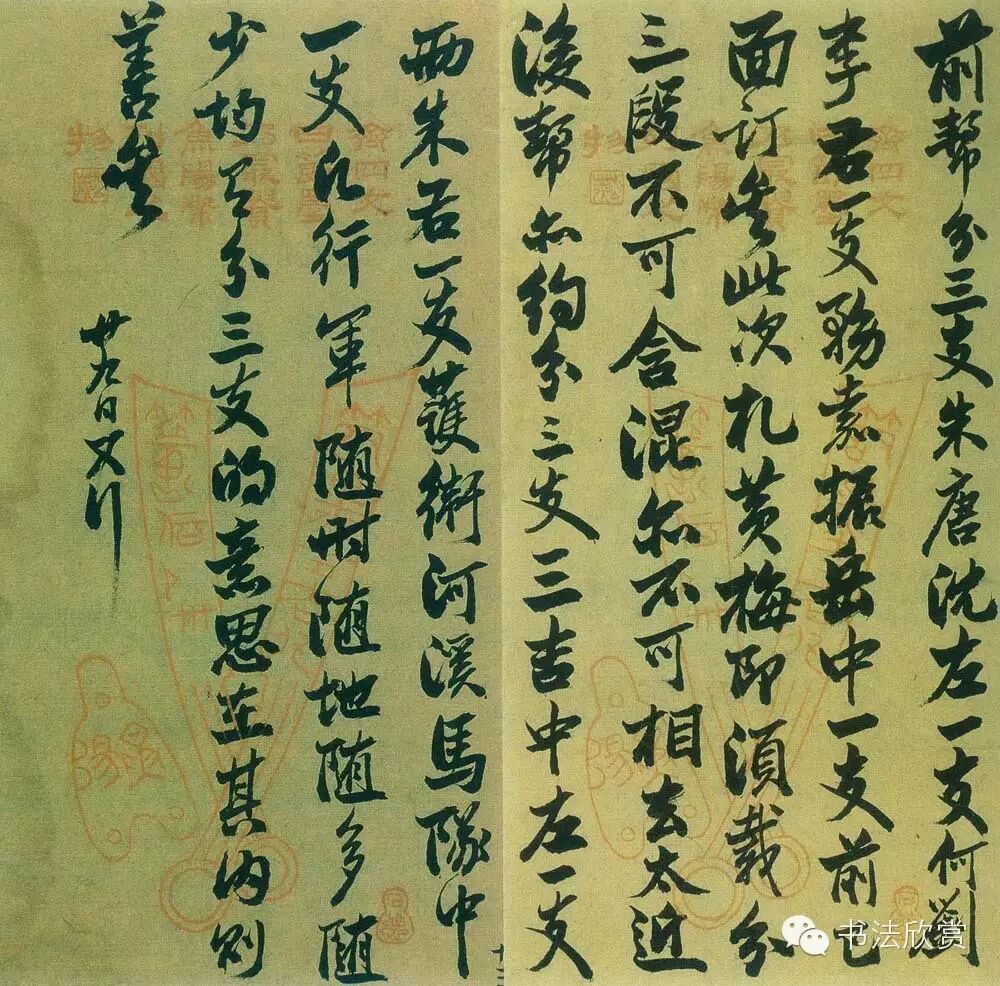 前幫分三支朱唐沈左一支何劉
李君一支嘉振岳中一支前已
面訂矣此次札黃梅即須截分
三段不可含混亦不可相去太近
後幫亦約分三支三吉中左一支
兩朱君一支護衛河溪馬隊中
一支凡行軍隨時隨地隨多隨
少均有分三支的意思在其內則
善矣
廿九日又行
书法欣赏